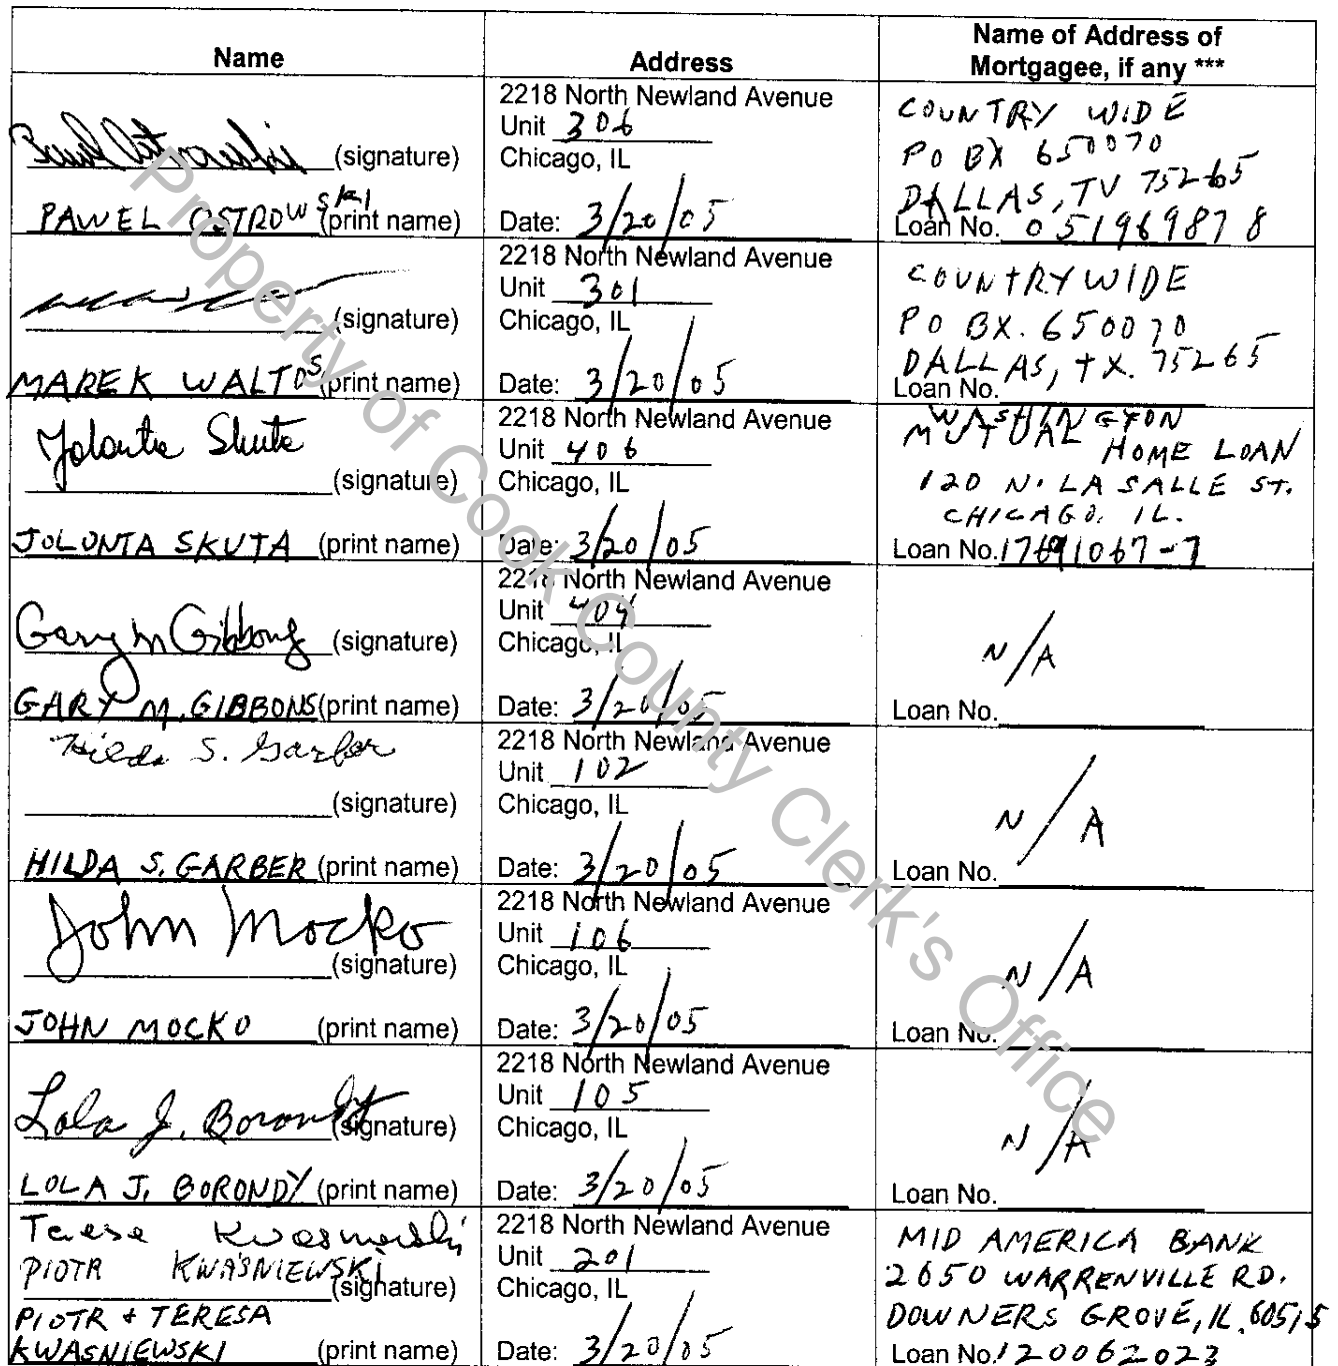 Name
Address
Name of Address of
Mortgagee, if any ***
(signature)
PAWEL OSTROWSKI (print name)
2218 North Newland Avenue
Unit 306
Chicago, IL
Date: 3/20/05
COUNTRY WIDE
PO BX 650070
DALLAS, TV 75265
Loan No. 051969878
(signature)
MAREK WALTOS (print name)
2218 North Newland Avenue
Unit 301
Chicago, IL
Date: 3/20/05
COUNTRYWIDE
PO BX. 650070
DALLAS, TX. 75265
Loan No.
Jolanta Skuta
(signature)
JOLONTA SKUTA (print name)
2218 North Newland Avenue
Unit 406
Chicago, IL
Date: 3/20/05
WASHINGTON
MUTUAL HOME LOAN
120 N. LA SALLE ST.
CHICAGO, IL.
Loan No. 17691067-7
Gary M Gibbons (signature)
GARY M. GIBBONS (print name)
2218 North Newland Avenue
Unit 404
Chicago, IL
Date: 3/20/05
N/A
Loan No.
Hilda S. Garber
(signature)
HILDA S. GARBER (print name)
2218 North Newland Avenue
Unit 102
Chicago, IL
Date: 3/20/05
N/A
Loan No.
John Mocko
(signature)
JOHN MOCKO (print name)
2218 North Newland Avenue
Unit 106
Chicago, IL
Date: 3/20/05
N/A
Loan No.
Lola J. Borondy (signature)
LOLA J. BORONDY (print name)
2218 North Newland Avenue
Unit 105
Chicago, IL
Date: 3/20/05
N/A
Loan No.
Teresa Kwasniewski
PIOTR KWAŚNIEWSKI
(signature)
PIOTR + TERESA
KWASNIEWSKI (print name)
2218 North Newland Avenue
Unit 201
Chicago, IL
Date: 3/20/05
MID AMERICA BANK
2650 WARRENVILLE RD.
DOWNERS GROVE, IL. 60515
Loan No. 120062023
Property of Cook County Clerk's Office